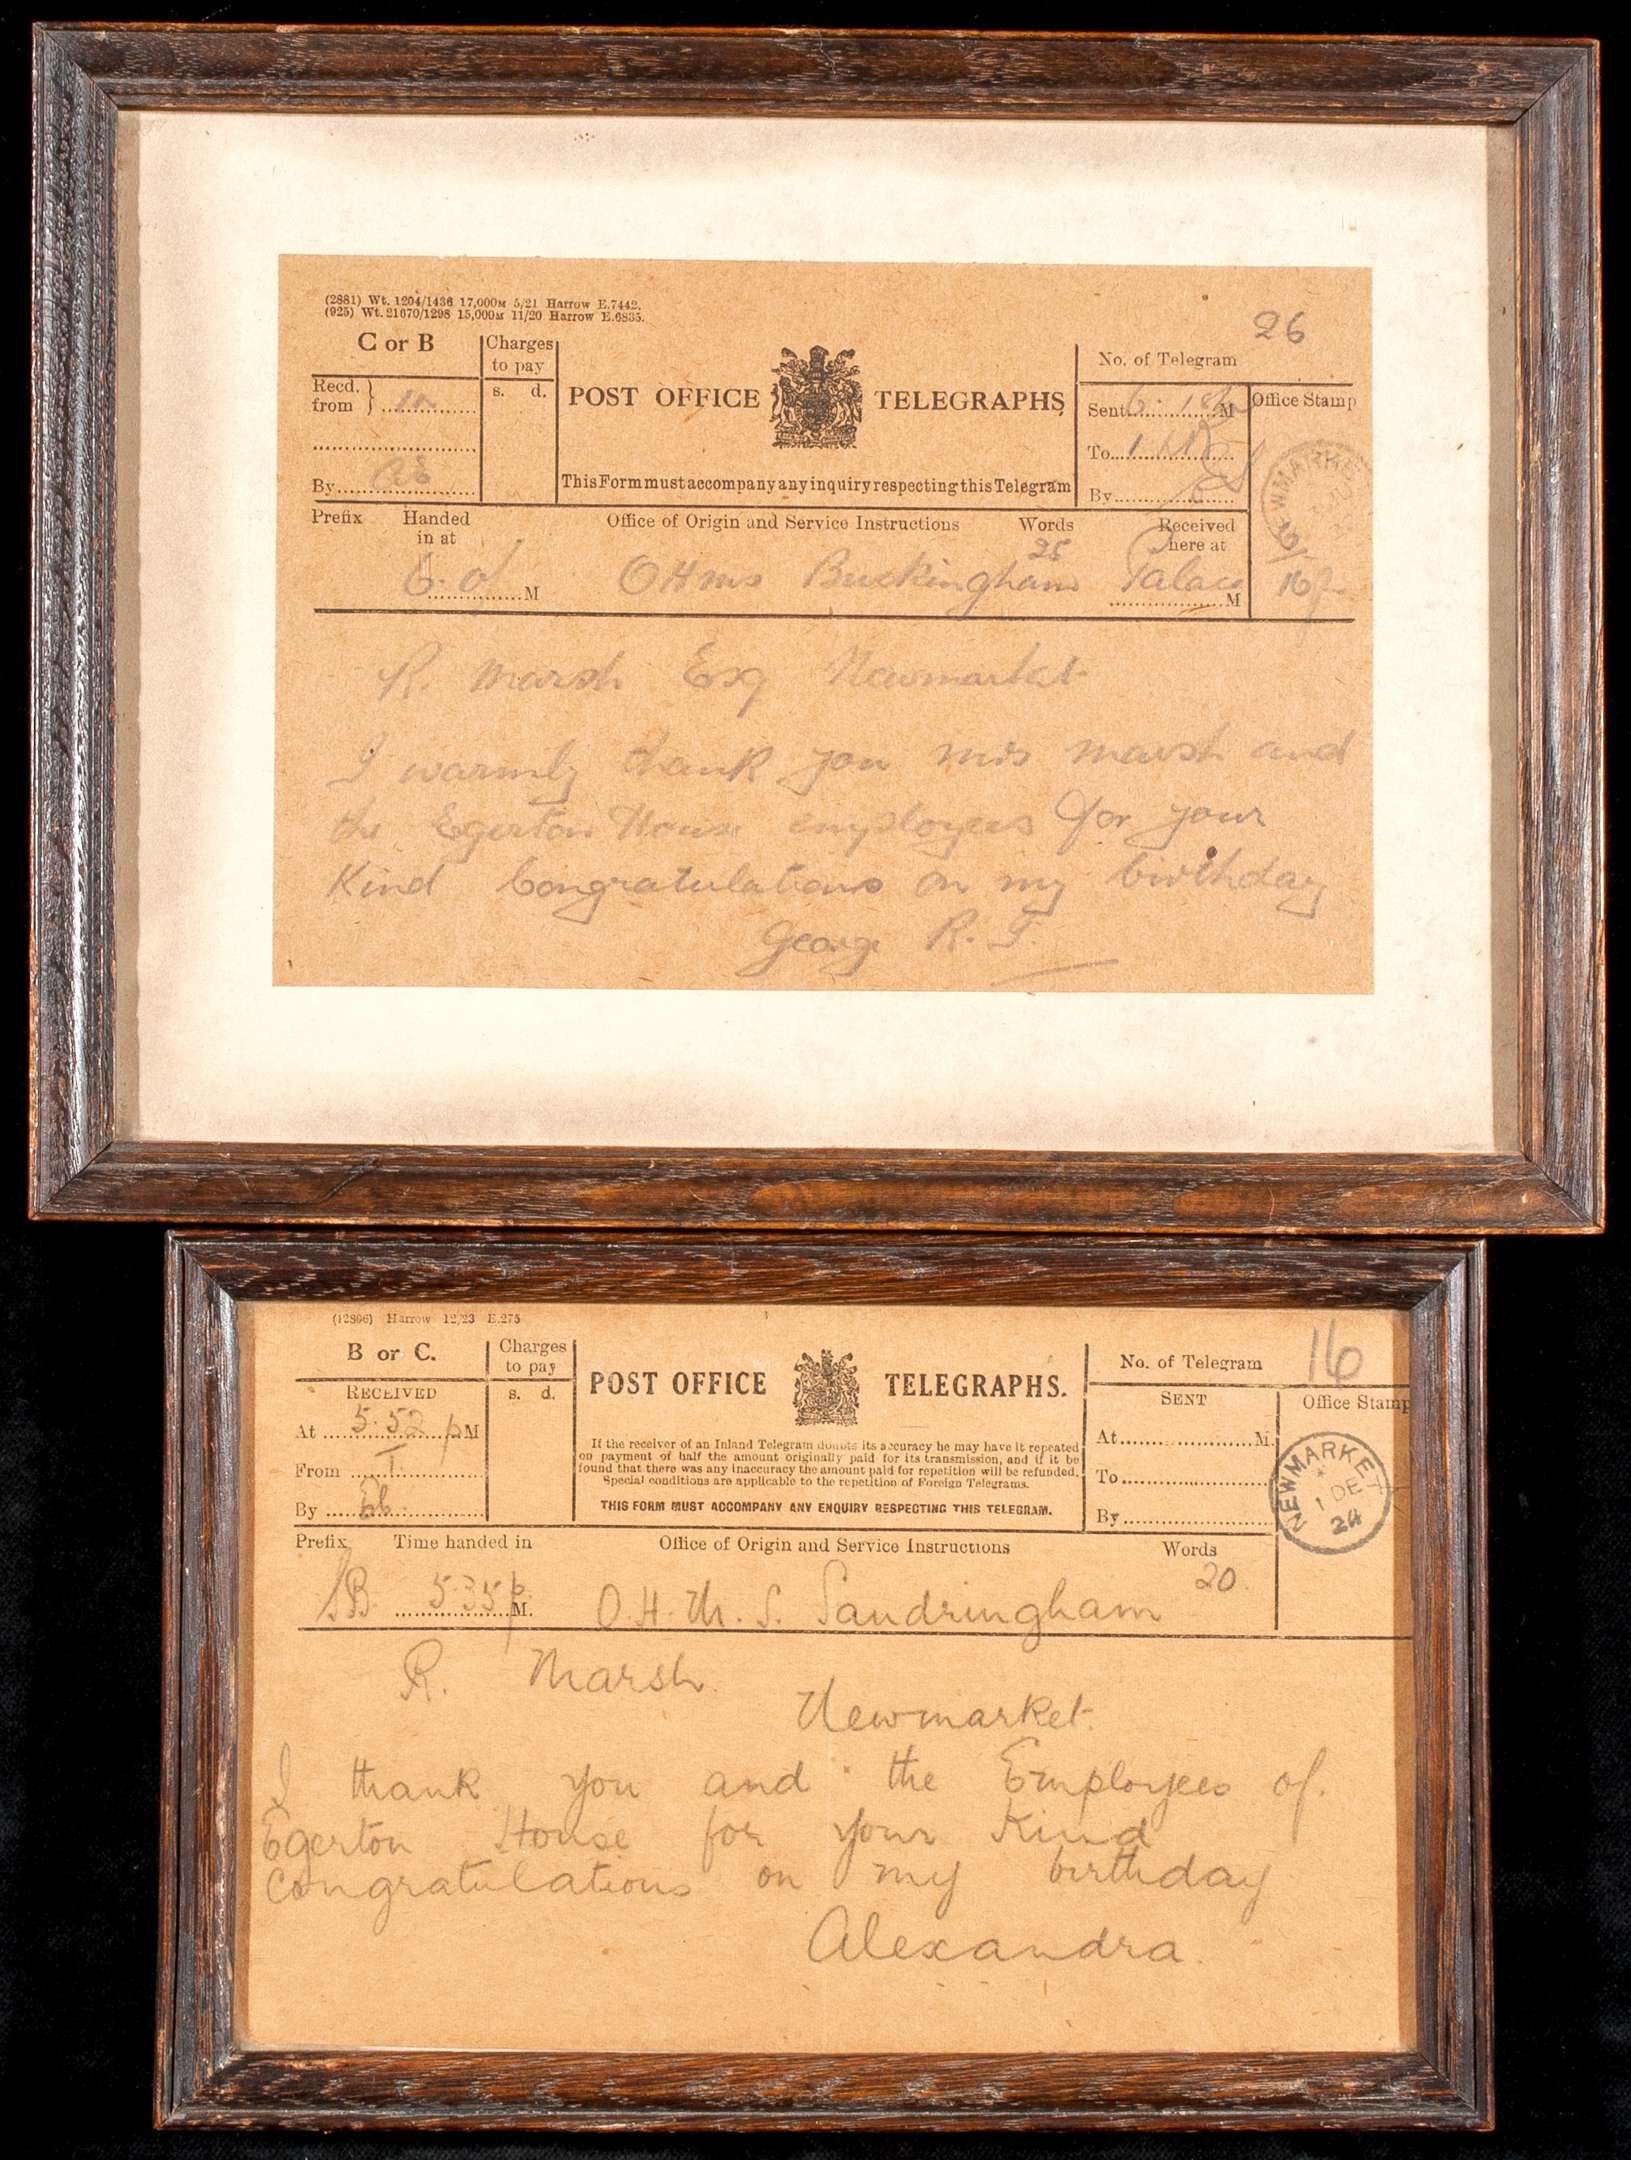 (2881) Wt. 1204/1436 17,000M 5/21 Harrow E.7442.
(925) Wt. 21670/1298 15,000M 11/20 Harrow E.6835.
26
C or B
Charges to pay
s. d.
POST OFFICE TELEGRAPHS
No. of Telegram
Recd. from
Sent 6. M
Office Stamp
To
By
This Form must accompany any inquiry respecting this Telegram
By
NEWMARKET
Prefix Handed in at Office of Origin and Service Instructions Words Received here at
25
6. M OHMS Buckingham Palace M
R. Marsh Esq Newmarket
I warmly thank you mrs marsh and
the Egerton House employees for your
Kind Congratulations on my birthday
George R. I.
(12806) Harrow 12/23 E.275
16
B or C.
Charges to pay
s. d.
POST OFFICE TELEGRAPHS.
No. of Telegram
RECEIVED
SENT
Office Stamp
At 5.52 pM
At M.
From T.
To
By
By
If the receiver of an Inland Telegram doubts its accuracy he may have it repeated
on payment of half the amount originally paid for its transmission, and if it be
found that there was any inaccuracy the amount paid for repetition will be refunded.
Special conditions are applicable to the repetition of Foreign Telegrams.
THIS FORM MUST ACCOMPANY ANY ENQUIRY RESPECTING THIS TELEGRAM.
NEWMARKET
1 DE
24
Prefix Time handed in Office of Origin and Service Instructions Words
20
SB. 5.35 p M. O.H.M.S. Sandringham
R. Marsh.
Newmarket.
I thank you and the Employees of.
Egerton House for your Kind
Congratulations on my birthday
Alexandra.